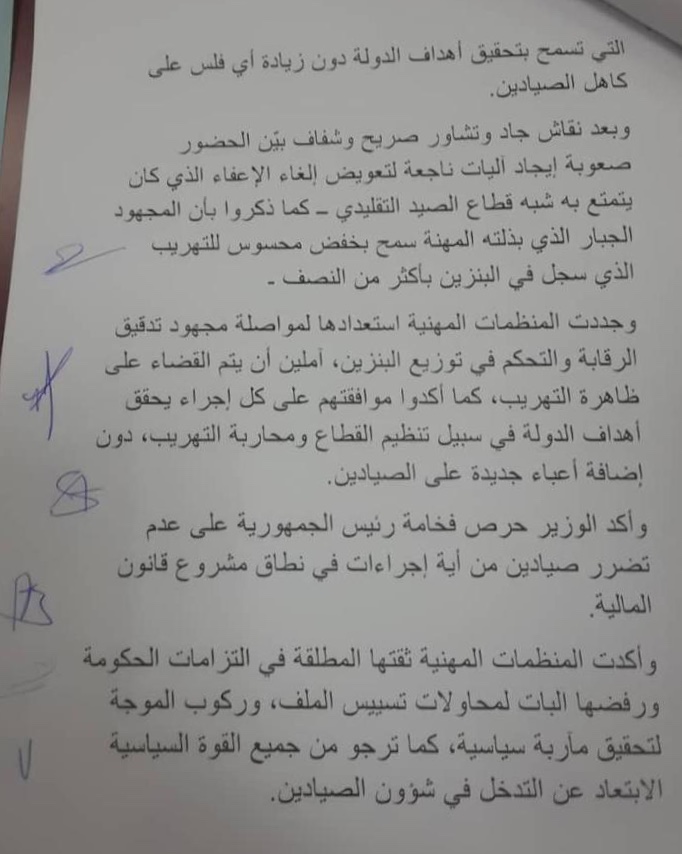 التي تسمح بتحقيق أهداف الدولة دون زيادة أي فلس على
كاهل الصيادين.
وبعد نقاش جاد وتشاور صريح وشفاف بيّن الحضور
صعوبة إيجاد آليات ناجعة لتعويض إلغاء الإعفاء الذي كان
يتمتع به شبه قطاع الصيد التقليدي – كما ذكروا بأن المجهود
الجبار الذي بذلته المهنة سمح بخفض محسوس للتهريب
الذي سجل في البنزين بأكثر من النصف -
وجددت المنظمات المهنية استعدادها لمواصلة مجهود تدقيق
الرقابة والتحكم في توزيع البنزين، آملين أن يتم القضاء على
ظاهرة التهريب، كما أكدوا موافقتهم على كل إجراء يحقق
أهداف الدولة في سبيل تنظيم القطاع ومحاربة التهريب، دون
إضافة أعباء جديدة على الصيادين.
وأكد الوزير حرص فخامة رئيس الجمهورية على عدم
تضرر صيادين من أية إجراءات في نطاق مشروع قانون
المالية.
وأكدت المنظمات المهنية ثقتها المطلقة في التزامات الحكومة
ورفضها البات لمحاولات تسييس الملف، وركوب الموجة
لتحقيق مآربة سياسية، كما ترجو من جميع القوة السياسية
الابتعاد عن التدخل في شؤون الصيادين.